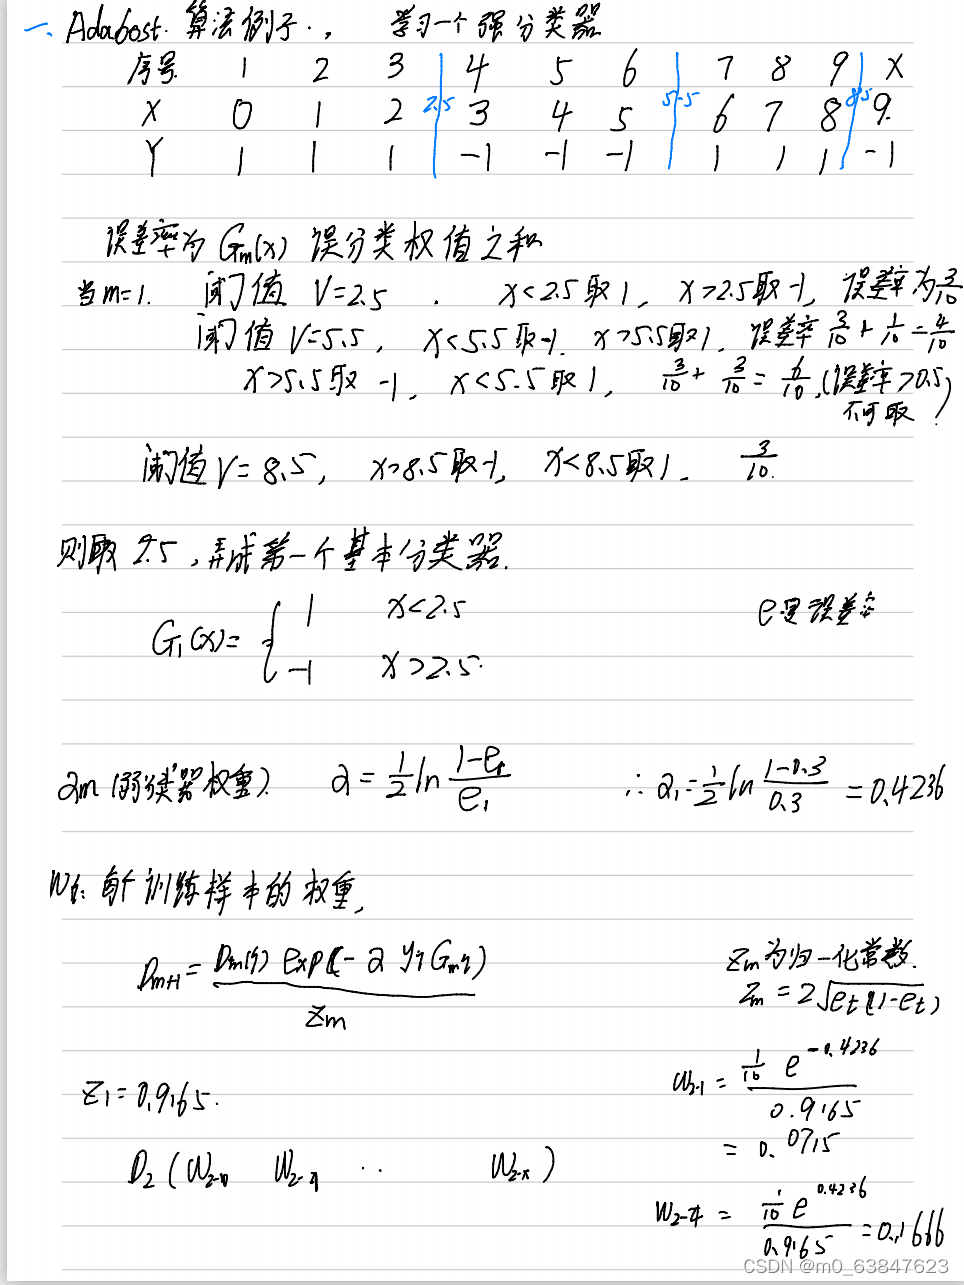 一、Adabost.算法例子., 学习一个强分类器
序号 1 2 3 4 5 6 7 8 9 X
X 0 1 2 2.5 3 4 5 5.5 6 7 8 8.5 9.
Y 1 1 1 -1 -1 -1 1 1 1 -1
误差率为 Gm(x) 误分类权值之和
当m=1. 阈值 V=2.5 . x<2.5取1, x>2.5取-1, 误差率为3/10
阈值 V=5.5, x<5.5取-1. x>5.5取1, 误差率 3/10+1/10=4/10
x>5.5取 -1, x<5.5取1, 3/10+3/10=6/10,(误差率>0.5
不可取)
阈值V=8.5, x>8.5取-1, x<8.5取1. 3/10.
则取 2.5,弄成第一个基本分类器.
G1(x)= { 1 x<2.5
-1 x>2.5.
e是误差率
2m(弱分类器权重). 2=1/2 ln (1-e1)/e1 ∴ 21=1/2 ln (1-0.3)/0.3 =0.4236
每个训练样本的权重,
Dm+1= Dm(i) exp(-2 yi Gmi) / Zm
Zm为归一化常数.
Zm=2√et(1-et)
Z1=0.9165.
W2-1 = 1/10 e^-0.4236 / 0.9165
= 0.0715
D2(W2-1 .. W2-x)
W2-4 = 1/10 e^0.4236 / 0.9165 =0.1666
CSDN @m0_63847623